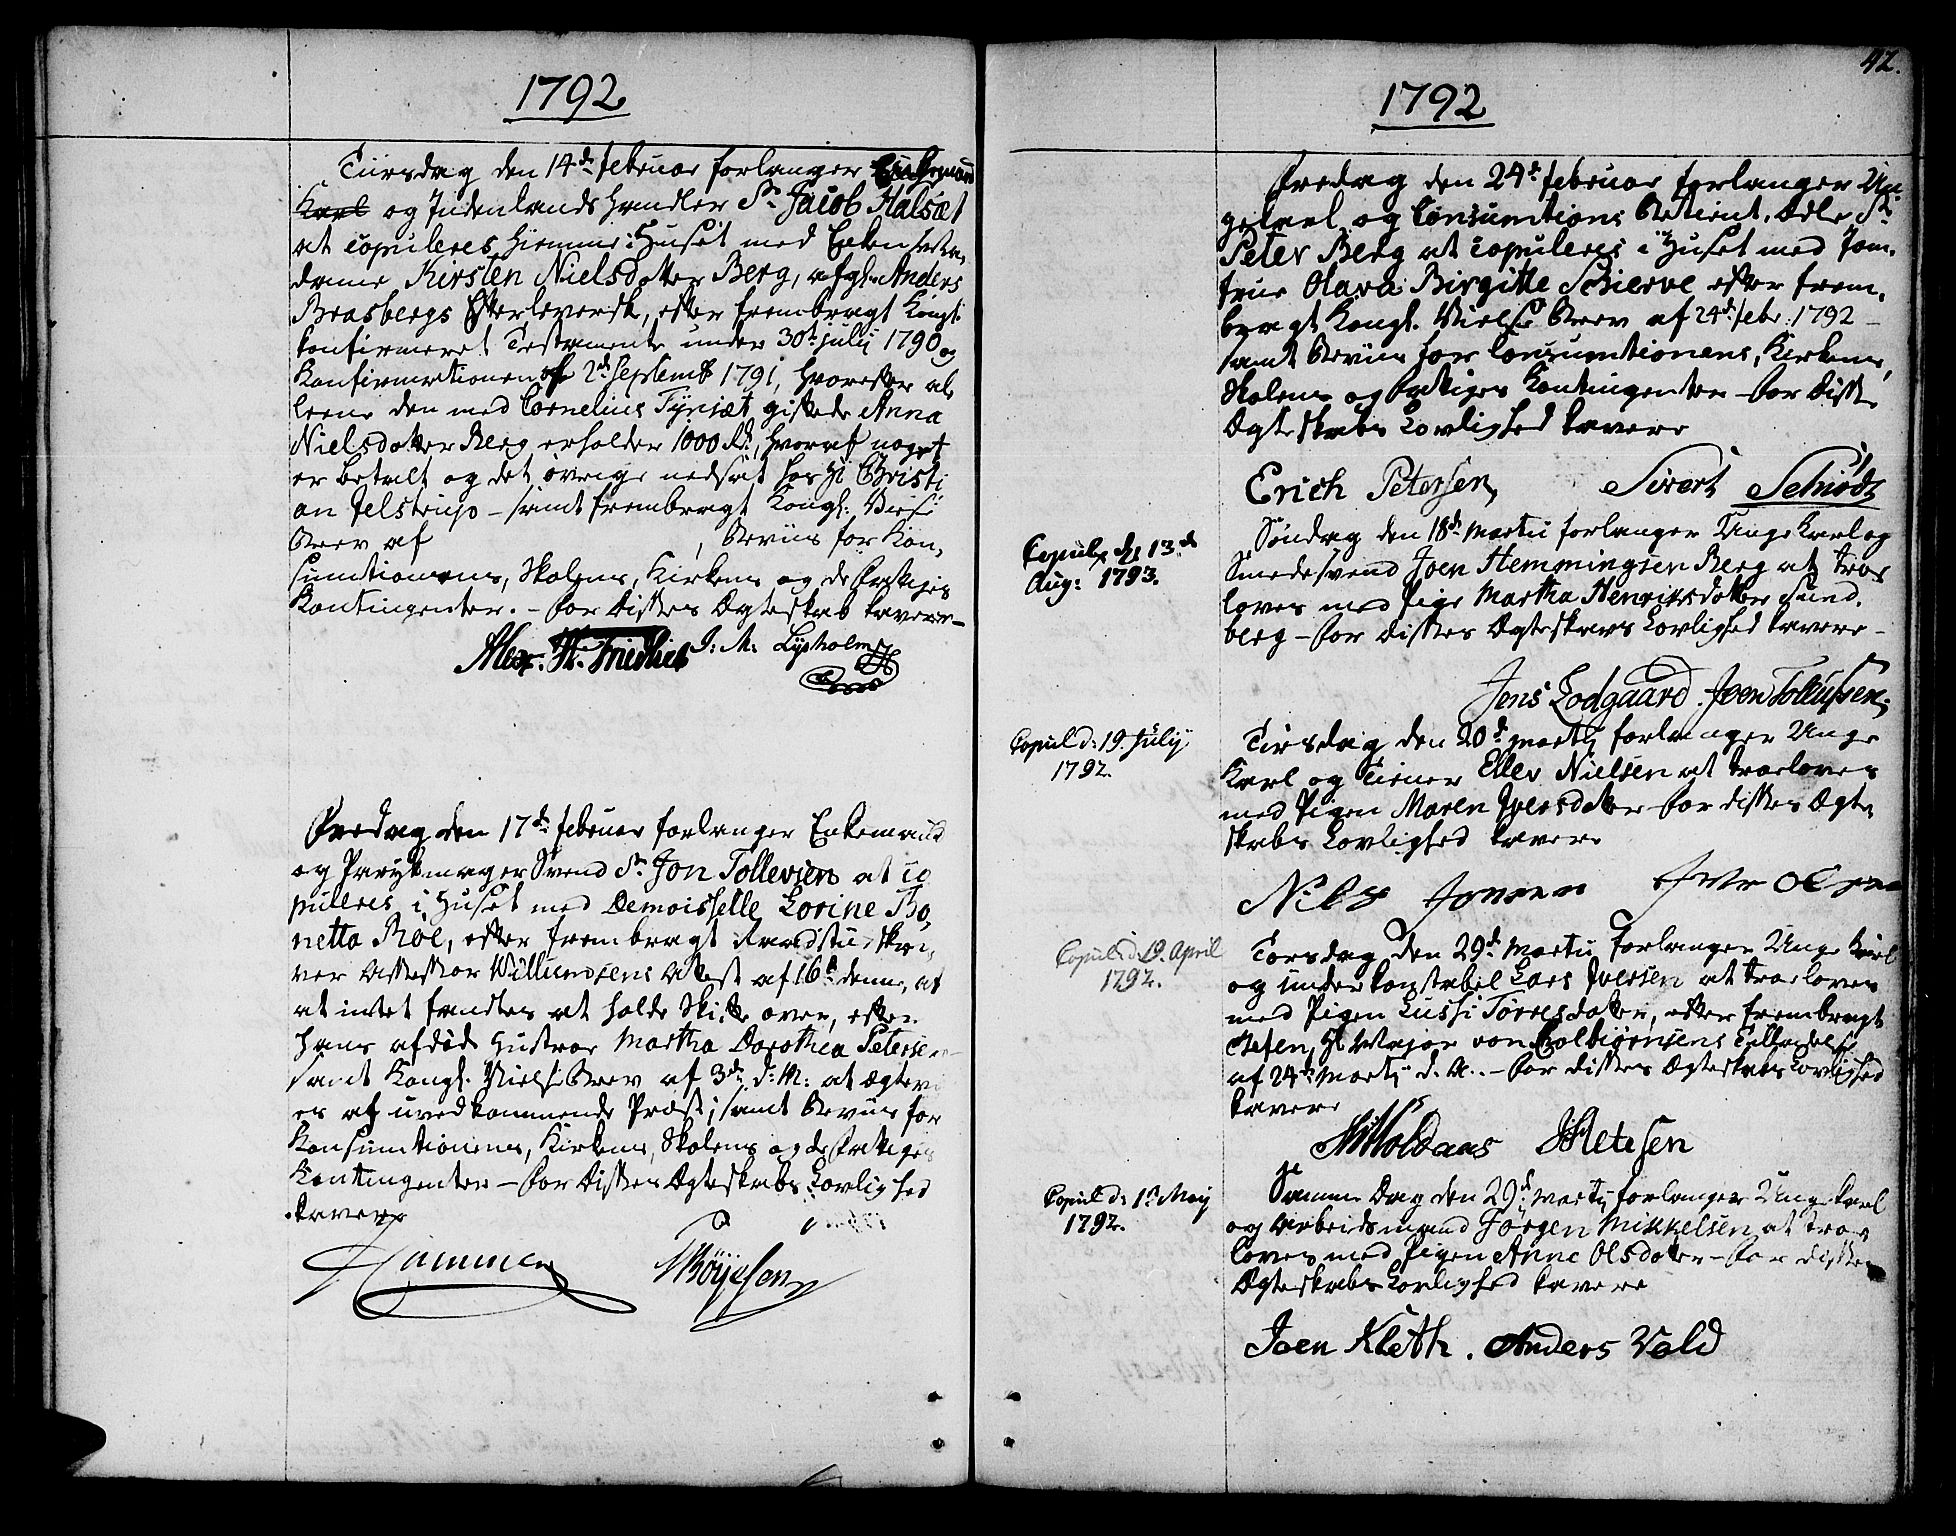 1792
Tiirsdag den 14de februar forlanger Enkemand
Karl og Indenlands Handler Sr. Jacob Halsæt
at copuleres hiemme i Huset med Enken Ma-
dame Kirsten Nielsdatter Berg, afg: Anders
Brasbergs Efterleversk, efter frembragt Kongl:
konfirmeret Testamente under 30te julij 1790 og
Konfirmationen af 2de Septembr 1791, hvorefter al,
leene den med Cornelius Tynsæt giftede Anna
Nielsdatter Berg erholder 1000 Rd:, hvoraf noget
er betalt og det övrige nedsat hos Hr Christi
an Jelstrup – samt frembragt Kongl: Vielse
Brev af , Beviis for Kon,
sumtionens, Skolens, Kirkens og de Fattiges
Kontingenter. – for Disses Ægteskab kavere –
Alex. H. Friedlieb J: M: Lysholm
Fredag den 17de februar forlanger Enkemand
og Parykmager Svend Sr. Jon Tollevsen at co
puleres i Huset med Demoisselle Lorine Bo,
netta Roe, efter frembragt Raadstueskri,
ver Assessor Willumsens Atest af 16de denne, at
at intet fandtes at holde Skifte over, efter
hans afdöde Hustroe Martha Dorothea Petersen
samt Kongl. Vielse Brev af 3de d: M: at ægtevi
es af uvedkommende Præst; samt Beviis for
Konsumtionens, Kirkens, Skolens og de Fattiges
Kontingenter – for Disses Ægteskabs Lovlighed
kavere
Hammer TBöyesen
42.
1792
Fredag den 24de februar forlanger Un,
gekarl og Consumtions Betient. Ædle Sr.
Peter Berg at copuleres i Huset med Jom,
frue Olava Birgitte Schierve efter frem,
bragt Kongl. Vielse Brev af 24de febr: 1792 –
samt Beviis for Consumtionens, Kirkens,
Skolens og Fattiges Kontingenter – for Disses
Ægteskabs Lovlighed kavere
Erich Petersen, Sivert Schiödt
Copul. d. 13de
Aug: 1793.
Söndag den 18de Martii forlanger Unge Karl og
Smedesvend Joen Hemmingsen Berg at troe
loves med Pige Martha Henriksdatter Sund,
berg – for Disses Ægteskabs Lovlighed kavere –
Jens Lodgaard. Joen Tollefsen.
Copul d: 19. Julij
1792.
Tirsdag den 20de Martij forlanger Unge
Karl og Tiener Ellev Nielsen at troeloves
med Pigen Maren Iversdatter – for disses Ægte
skabs Lovlighed kavere
Nils Jonsen Iver Olsen
Copul d. 19. April
1792.
Torsdag den 29de Martii forlanger Unge Karl
og underkonstabel Lars Iversen at troeloves
med Pigen Lussi Torresdatter, efter frembragt
Chefen, Hr Major von Coldiörnsens Tilladelse
af 24de Martij d. A. – for disses Ægteskabs Lovlighed
kavere
Petersen
Copul d: 1te Maij
1792.
Samme Dag den 29de Martij forlanger Unge Karl
og Arbeidsmand Jörgen Mikkelsen at troe
loves med Pigen Anne Olsdatter – for disses
Ægteskabs Lovlighed kavere
Joen Kleth. Anders Vold